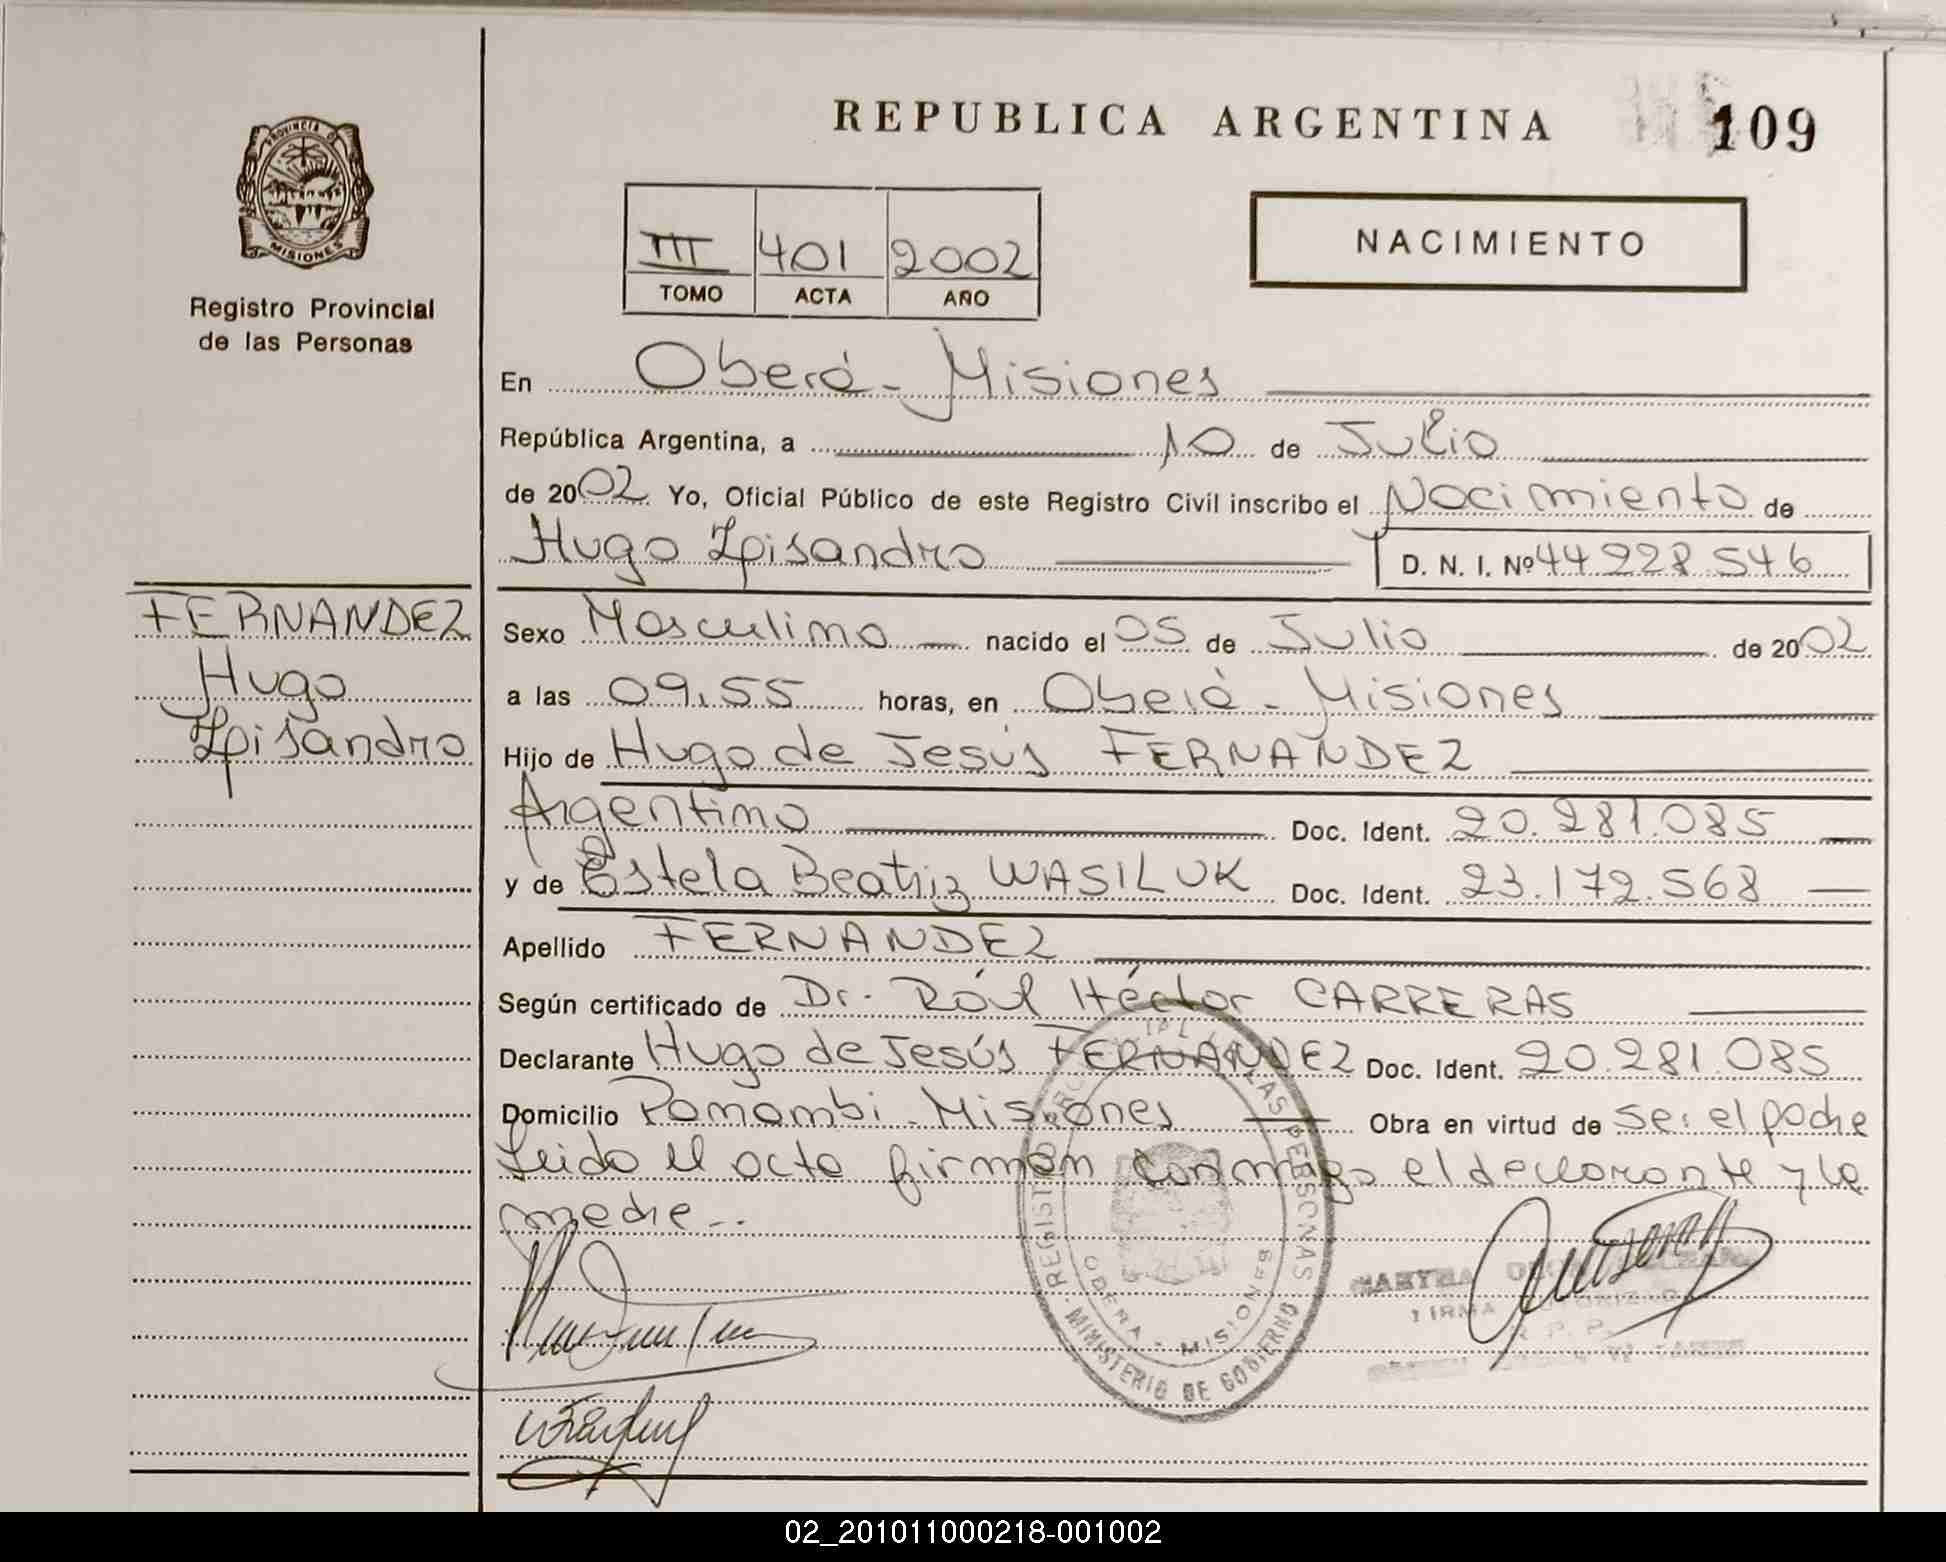 REPUBLICA ARGENTINA 109
PROVINCIA DE MISIONES
Registro Provincial
de las Personas
III 401 2002
TOMO ACTA AÑO
NACIMIENTO
En Oberá - Misiones
República Argentina, a 10 de Julio
de 2002 Yo, Oficial Público de este Registro Civil inscribo el Nacimiento de
Hugo Lpisandro D. N. I. Nº 44 228 546
FERNANDEZ
Hugo
Lpisandro
Sexo Masculino nacido el 05 de Julio de 2002
a las 09.55 horas, en Oberá - Misiones
Hijo de Hugo de Jesús FERNANDEZ
Argentino Doc. Ident. 20.281.085
y de Estela Beatriz WASILUK Doc. Ident. 23.172.568
Apellido FERNANDEZ
Según certificado de Dr. Rául Héctor CARRERAS
Declarante Hugo de Jesús FERNANDEZ Doc. Ident. 20.281.085
Domicilio Panambi - Misiones Obra en virtud de ser el padre
Leido el acta firman conmigo el declarante y la
madre..
REGISTRO PROVINCIAL DE LAS PERSONAS
OBERA - MISIONES
- MINISTERIO DE GOBIERNO
MARTHA
FIRMA AUTORIZADA
R. P. P.
02_201011000218-001002